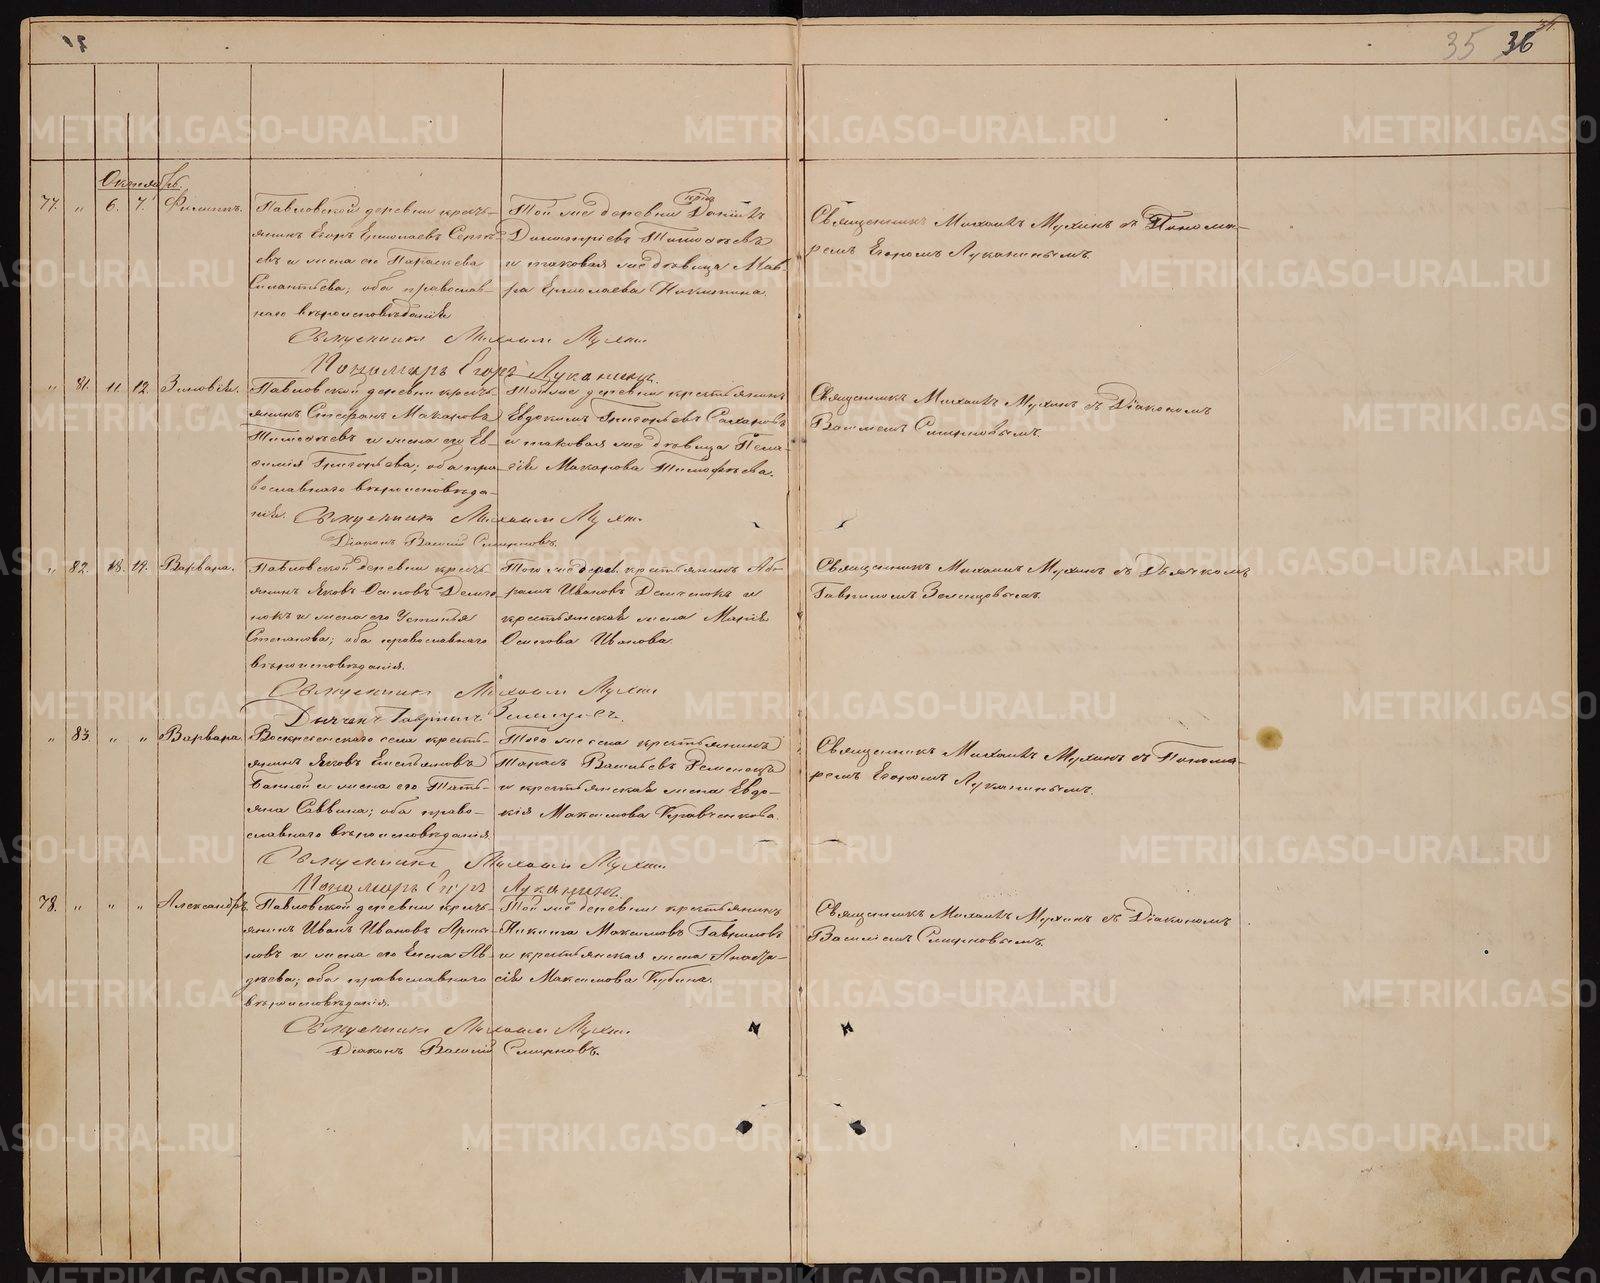 35 36
Октябрь.
77. " 6. 7. Филиппъ.
Павловской деревни кресть-
янинъ Егоръ Ермолаевъ
евъ и жена его Параскева
оба православ-
наго вѣроисповѣданія
Той же деревни крес Даніилъ
Димитріевъ Тимофѣевъ
и таковая же дѣвица Мав-
ра Ермолаева Никитина.
Священникъ Михаилъ Мухинъ съ Понома-
ремъ Егоромъ Луканинымъ.
Священникъ Михаилъ Мухин
Пономарь Егоръ Луканинъ.
" 81. 11. 12. Зиновія.
Павловской деревни кресть-
янинъ Стефанъ Макаровъ
Тимофѣевъ и жена его Ев-
фимія Григорьева; оба пра-
вославнаго вѣроисповѣда-
нія.
Той же деревни крестьянинъ
Евдокимъ Григорьевъ
и таковая же дѣвица Пела-
гія Макарова Тимофѣева.
Священникъ Михаилъ Мухинъ съ Діакономъ
Василіемъ Смирновымъ.
Священникъ Михаилъ Мухин.
Діаконъ Василій Смирновъ.
" 82. 18. 19. Варвара.
Павловской деревни кресть-
янинъ Яковъ Осиповъ
и жена его Устинья
Степанова; оба православнаго
вѣроисповѣданія.
Той же дерев. крестьянинъ Ав-
рамъ Ивановъ и
крестьянская жена Марія
Осипова Иванова.
Священникъ Михаилъ Мухинъ съ Дьячкомъ
Гавріиломъ Зеленцовымъ.
Священникъ Михаилъ Мухин
Дьячекъ Гавріилъ Зеленцовъ.
" 83. " " Варвара.
Воскресенскаго села кресть-
янинъ Яковъ Емельяновъ
и жена его Тать-
яна Саввина; оба право-
славнаго вѣроисповѣданія.
Того же села крестьянинъ
Тарасъ Васильевъ
и крестьянская жена Евдо-
кія Максимова Кравченкова.
Священникъ Михаилъ Мухинъ съ Понома-
ремъ Егоромъ Луканинымъ.
Священникъ Михаилъ Мухин.
Пономарь Егоръ Луканинъ.
78. " " " Александръ.
Павловской деревни кресть-
янинъ Иванъ Ивановъ
и жена его Елена Ав-
дѣева; оба православнаго
вѣроисповѣданія.
Той же деревни крестьянинъ
Никита Максимовъ Гавриловъ
и крестьянская жена Анаста-
сія Максимова Кубина.
Священникъ Михаилъ Мухинъ съ Діакономъ
Василіемъ Смирновымъ.
Священникъ Михаилъ Мухин.
Діаконъ Василій Смирновъ.
METRIKI.GASO-URAL.RU